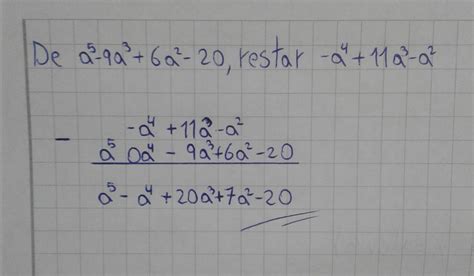 De a⁵-9a³+6a²-20, restar -a⁴+11a³-a²
- -a⁴+11a³-a²
a⁵ 0a⁴-9a³+6a²-20
a⁵-a⁴+20a³+7a²-20